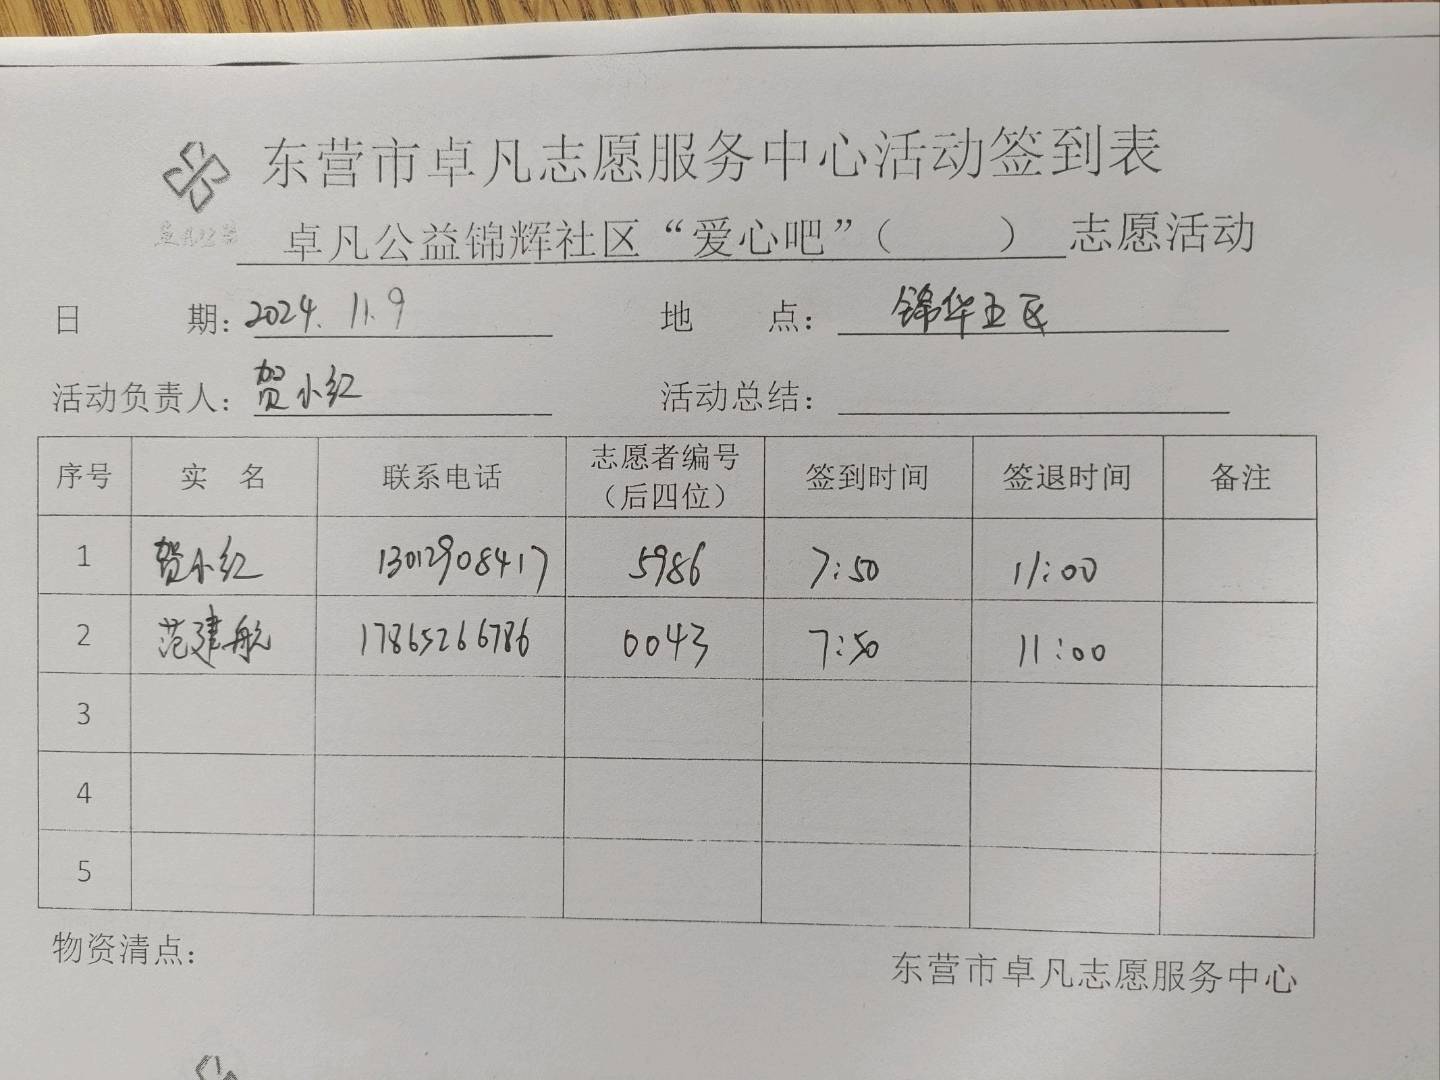 东营市卓凡志愿服务中心活动签到表
卓凡公益锦辉社区“爱心吧”（ ）志愿活动
日 期：2024.11.9 地 点：锦华五区
活动负责人：贺小红 活动总结：
序号 实 名 联系电话 志愿者编号（后四位） 签到时间 签退时间 备注
1 贺小红 13012908417 5986 7:50 11:00
2 范建航 17865266786 0043 7:50 11:00
3
4
5
物资清点：
东营市卓凡志愿服务中心